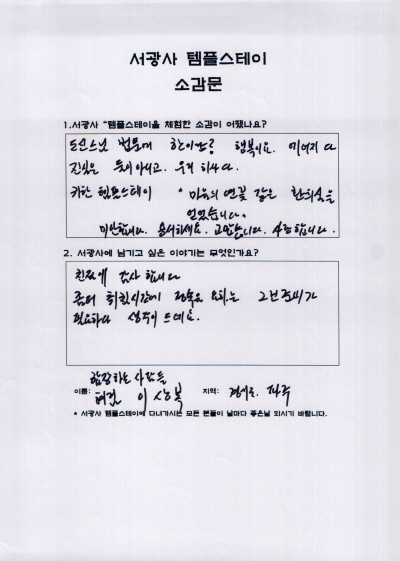 서광사 템플스테이
소감문
1.서광사 "템플스테이을 체험한 소감이 어땠나요?
도신스님 법문에 행복이요.
진실은 둘이 아니고. 우리 하나다.
템플스테이 * 마음의 연꽃 같은 환희심을
얻었습니다.
미안합니다. 용서하세요. 고맙습니다. 사랑합니다.
2. 서광사에 남기고 싶은 이야기는 무엇인가요?
친절에 감사 합니다
좀더 취침시간에 정숙을 요하는 그런 준비가
필요하다 생각이 드네요.
합장하는 사람들
이름: 이상복 지역: 경기도. 파주
* 서광사 템플스테이에 다녀가시는 모든 분들이 날마다 좋은날 되시기 바랍니다.